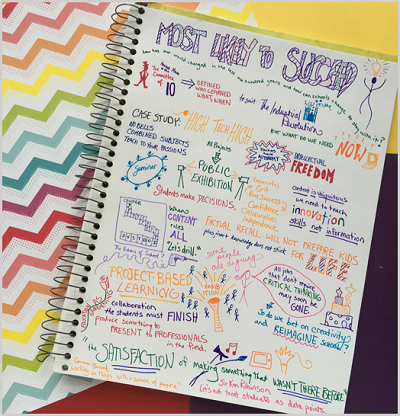 MOST LIKELY TO SUCCEED
how has our world changed in the last one hundred years and how can schools change to stay
Committee of 10
DEFINED
WHO LEARNED
WHAT WHEN
to suit The Industrial
Revolution
BUT WHAT DO WE NEED
NOW
CASE STUDY: HIGH TECH HIGH
NO BELLS
COMBINED SUBJECTS
TEACH TO YOUR PASSIONS
All Projects
PUBLIC
EXHIBITION
AUTONOMY
INTELLECTUAL
FREEDOM
Seminar
Students make DECISIONS.
Grit
Confidence
Collaboration
Independence
content is ubiquitous
we need to
teach
innovation
skills not information
WHEN
CONTENT
rules
ALL
"Let's drill."
The Game of School?
PARTIAL RECALL WILL NOT PREPARE KIDS
FOR LIFE
plus, inert knowledge does not stick
some
people
are
PROJECT-BASED
LEARNING
Collaboration
the students must FINISH
produce something to
PRESENT TO PROFESSIONALS
in the field.
All jobs
that don't require
CRITICAL THINKING
may soon be
GONE
So do we bet on creativity
and REIMAGINE SCHOOL?
the SATISFACTION of making something that WASN'T THERE BEFORE
working on things with a sense of purpose
Sir Ken Robinson
Let's not treat students as data points